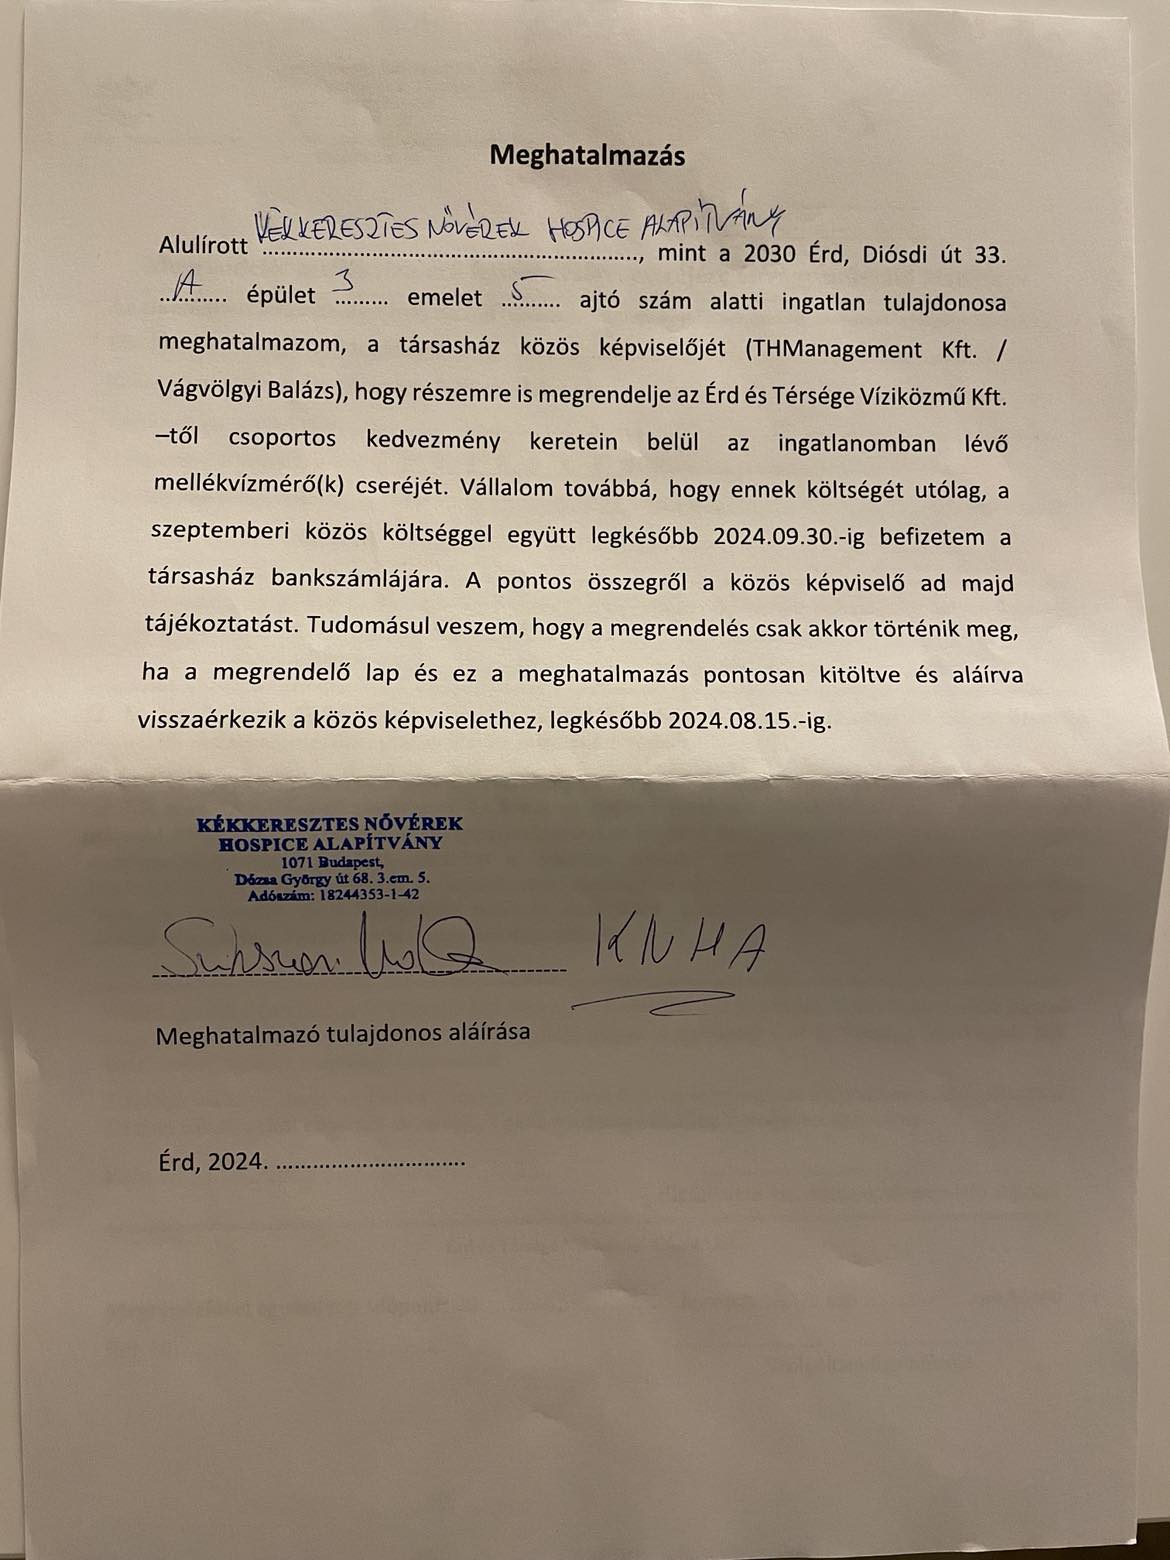 Meghatalmazás
KÉKKERESZTES NŐVÉREK HOSPICE ALAPÍTVÁNY
Alulírott ................................................., mint a 2030 Érd, Diósdi út 33.
A épület 3 emelet 5 ajtó szám alatti ingatlan tulajdonosa
meghatalmazom, a társasház közös képviselőjét (THManagement Kft. /
Vágvölgyi Balázs), hogy részemre is megrendelje az Érd és Térsége Víziközmű Kft.
–től csoportos kedvezmény keretein belül az ingatlanomban lévő
mellékvízmérő(k) cseréjét. Vállalom továbbá, hogy ennek költségét utólag, a
szeptemberi közös költséggel együtt legkésőbb 2024.09.30.-ig befizetem a
társasház bankszámlájára. A pontos összegről a közös képviselő ad majd
tájékoztatást. Tudomásul veszem, hogy a megrendelés csak akkor történik meg,
ha a megrendelő lap és ez a meghatalmazás pontosan kitöltve és aláírva
visszaérkezik a közös képviselethez, legkésőbb 2024.08.15.-ig.
KÉKKERESZTES NŐVÉREK
HOSPICE ALAPÍTVÁNY
1071 Budapest,
Dózsa György út 68. 3.em. 5.
Adószám: 18244353-1-42
KNHA
Meghatalmazó tulajdonos aláírása
Érd, 2024. ..............................